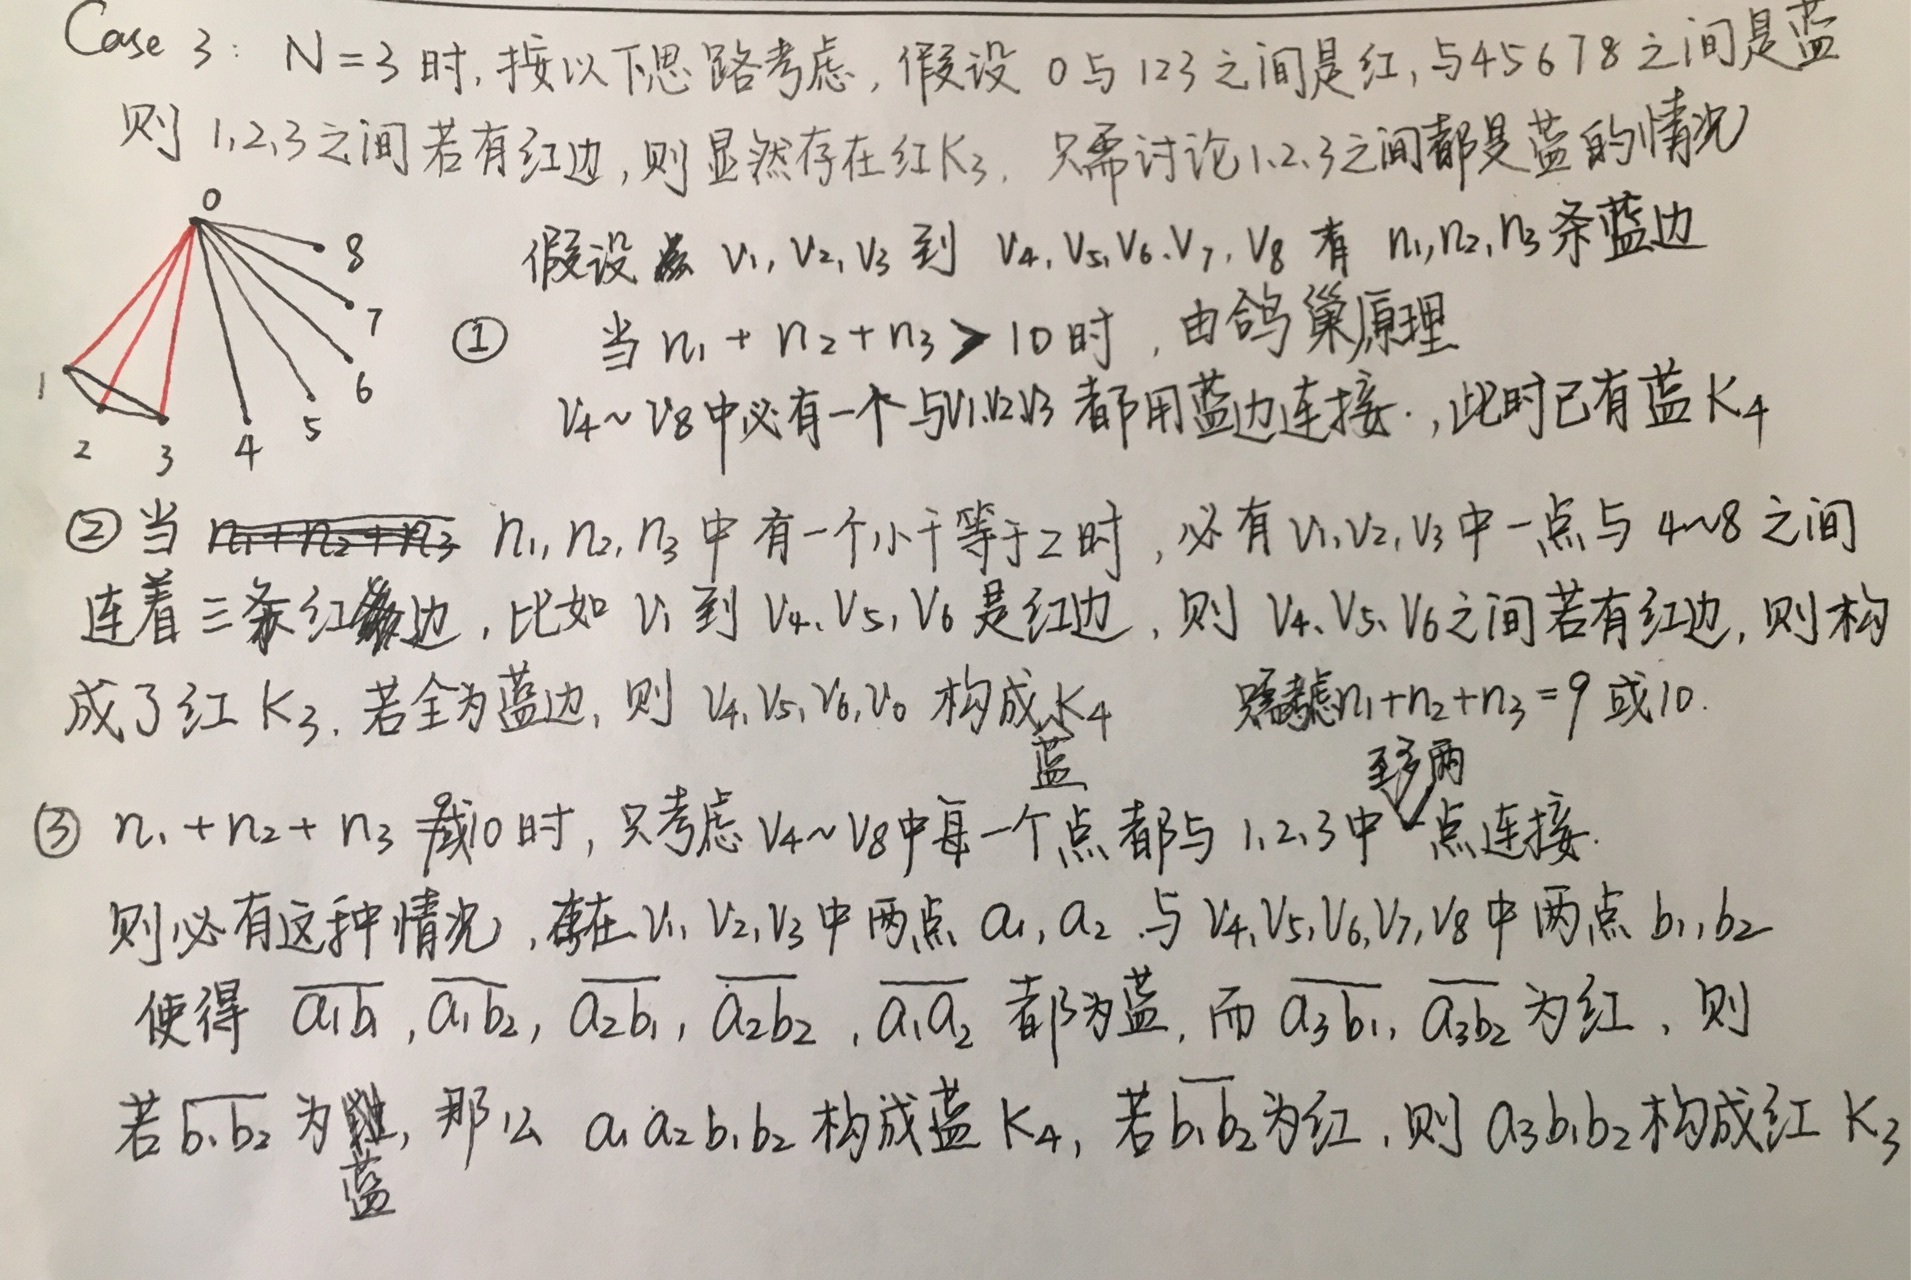 Case 3: N=3时,按以下思路考虑,假设 0与123之间是红,与45678之间是蓝
则 1,2,3之间若有红边,则显然存在红K3. 只需讨论1、2、3之间都是蓝的情况
0
8
7
6
5
4
3
2
1
假设 V1, V2, V3 到 V4, V5, V6、V7, V8 有 n1, n2, n3 条蓝边
① 当 n1 + n2 + n3 > 10 时, 由鸽巢原理
V4~V8中必有一个与V1V2V3都用蓝边连接.,此时已有蓝K4
②当 n1+n2+n3 n1, n2, n3 中有一个小于等于2时,必有V1, V2, V3中一点与 4~8 之间
连着三条红边, 比如 V1 到 V4、V5, V6 是红边, 则 V4、V5、V6之间若有红边, 则构
成了红 K3. 若全为蓝边, 则 V4, V5, V6, V0 构成蓝K4 只需考虑n1+n2+n3=9或10.
③ n1+n2+n3 = 9或10时, 只考虑V4~V8中每一个点都与1,2,3中至多两点连接.
则必有这种情况, 存在V1, V2, V3中两点 a1, a2 与 V4, V5, V6, V7, V8 中两点 b1, b2
使得 a1b1, a1b2, a2b1, a2b2, a1a2 都为蓝, 而 a3b1, a3b2为红, 则
若b1b2 为蓝, 那么 a1 a2 b1 b2 构成蓝 K4, 若b1b2为红, 则 a3b1b2构成红 K3